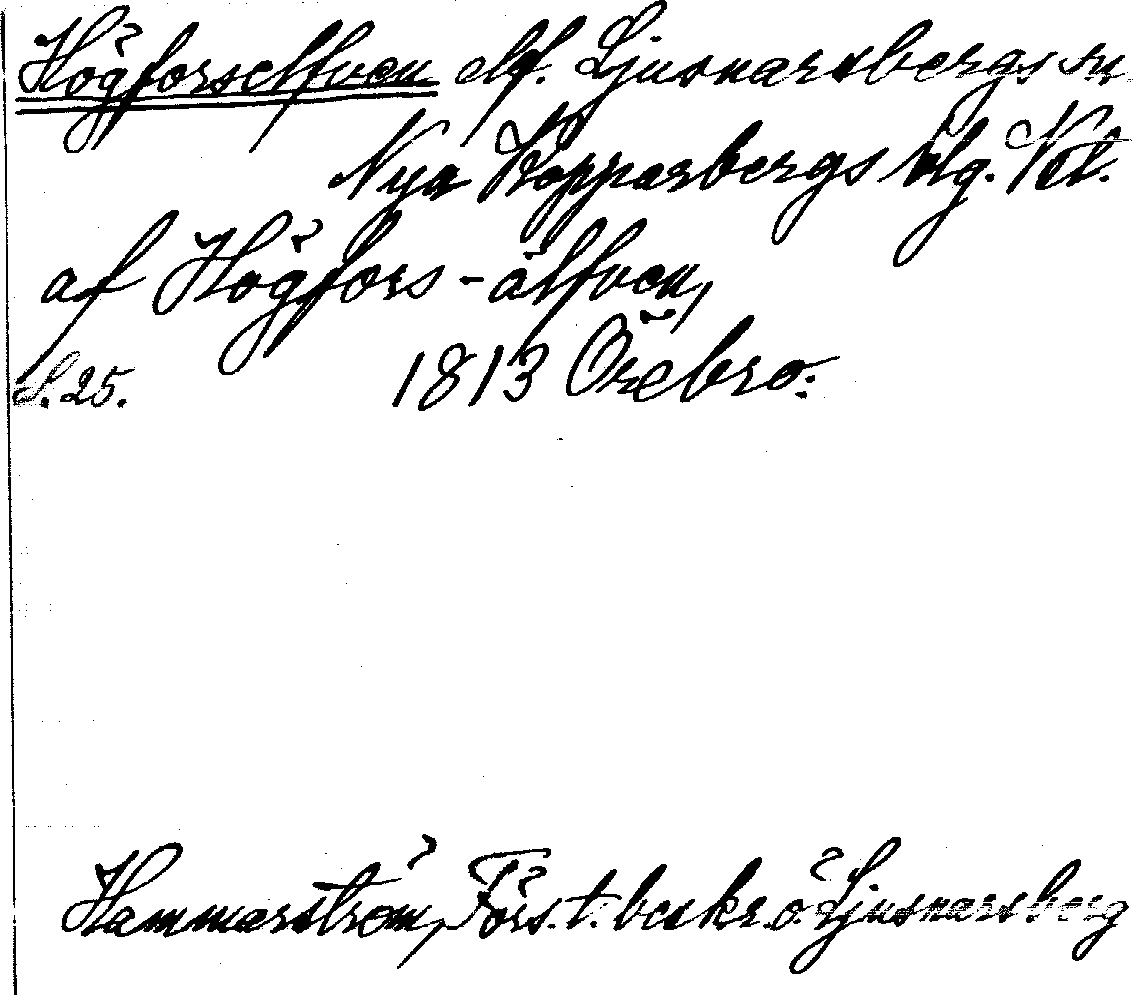 Högforselfven elf. Ljusnarsbergs sn
Nya Kopparbergs blg. Vtl.
af Högfors-älfven,
S. 25. 1813 Örebro:
Hammarström, Förs. t. beskr. ö. Ljusnarsberg